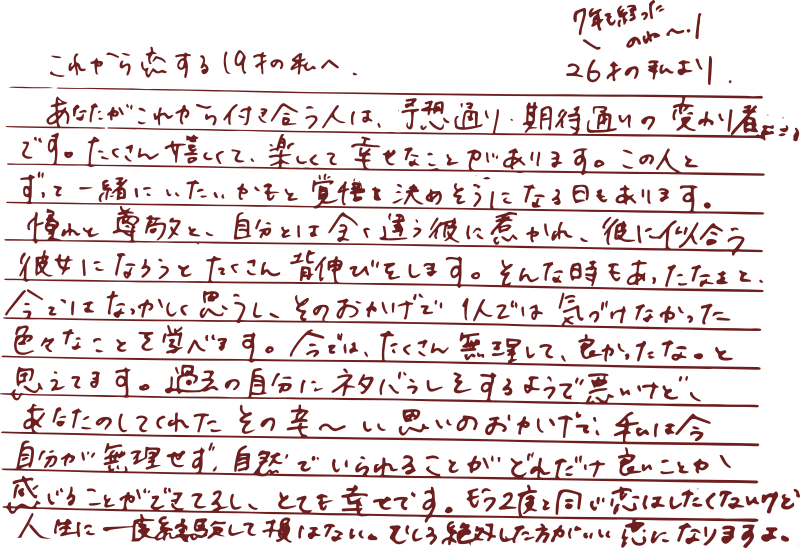 7年も経った
のね〜!
これから恋する19才の私へ.
26才の私より.
あなたがこれから付き合う人は、予想通り・期待通りの変わり者
です。たくさん嬉しくて、楽しくて幸せなことがあります。この人と
ずっと一緒にいたいかもと覚悟を決めそうになる日もあります。
憧れと尊敬と、自分とは全く違う彼に惹かれ、彼に似合う
彼女になろうとたくさん背伸びをします。そんな時もあったなぁと、
今ではなつかしく思うし、そのおかげで1人では気づけなかった
色々なことを学べます。今では、たくさん無理して、良かったな。と
思えてます。過去の自分にネタバラしをするようで悪いけど、
あなたのしてくれたその辛〜い思いのおかげで、私は今
自分が無理せず、自然でいられることがどれだけ良いことか
感じることができてるし、とても幸せです。もう2度と同じ恋はしたくないけど
人生に一度経験して損はない。むしろ絶対した方がいい恋になりますよ。